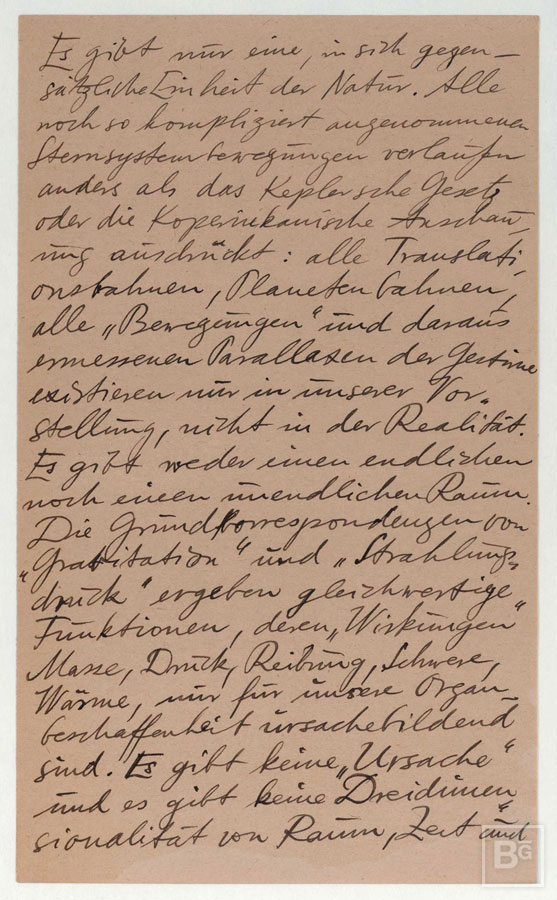 Es gibt nur eine, in sich gegen-
sätzliche Einheit der Natur. Alle
noch so kompliziert angenommenen
Sternsystembewegungen verlaufen
anders als das Keplersche Gesetz
oder die Kopernekanische Anschau,,
ung ausdrückt: alle Translati,,
onsbahnen, Planetenbahnen,
alle „Bewegungen“ und daraus
ermessenen Parallaxen der Gestirne
existieren nur in unserer Vor,,
stellung, nicht in der Realität.
Es gibt weder einen endlichen
noch eineen unendlichen Raum.
Die Grundkorrespondenzen von
„Gravitation“ und „Strahlungs=
druck“ ergeben gleichwertige
Funktionen, deren „Wirkungen“
Masse, Druck, Reibung, Schwere,
Wärme, nur für unsere Organ-
beschaffenheit ursachebildend
sind. Es gibt keine „Ursache“
und es gibt keine Dreidimen,,
sionalität von Raum, Zeit und
BG